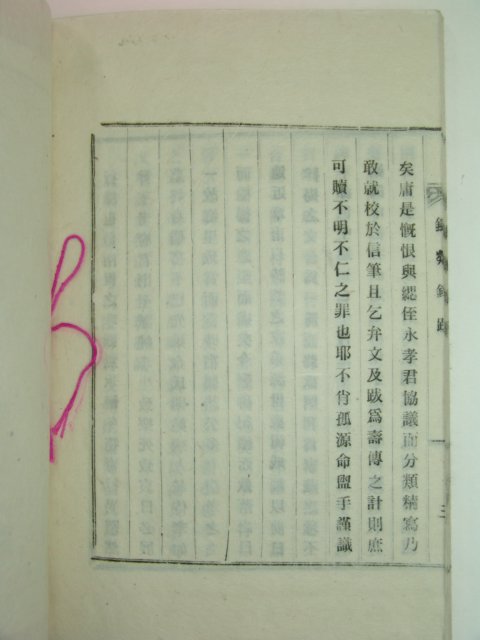 矣庸是慨恨與緦侄永孝君協議而分類精寫乃
敢就校於信筆且乞弁文及跋爲壽傳之計則庶
可贖不明不仁之罪也耶不肖孤源命盥手謹識